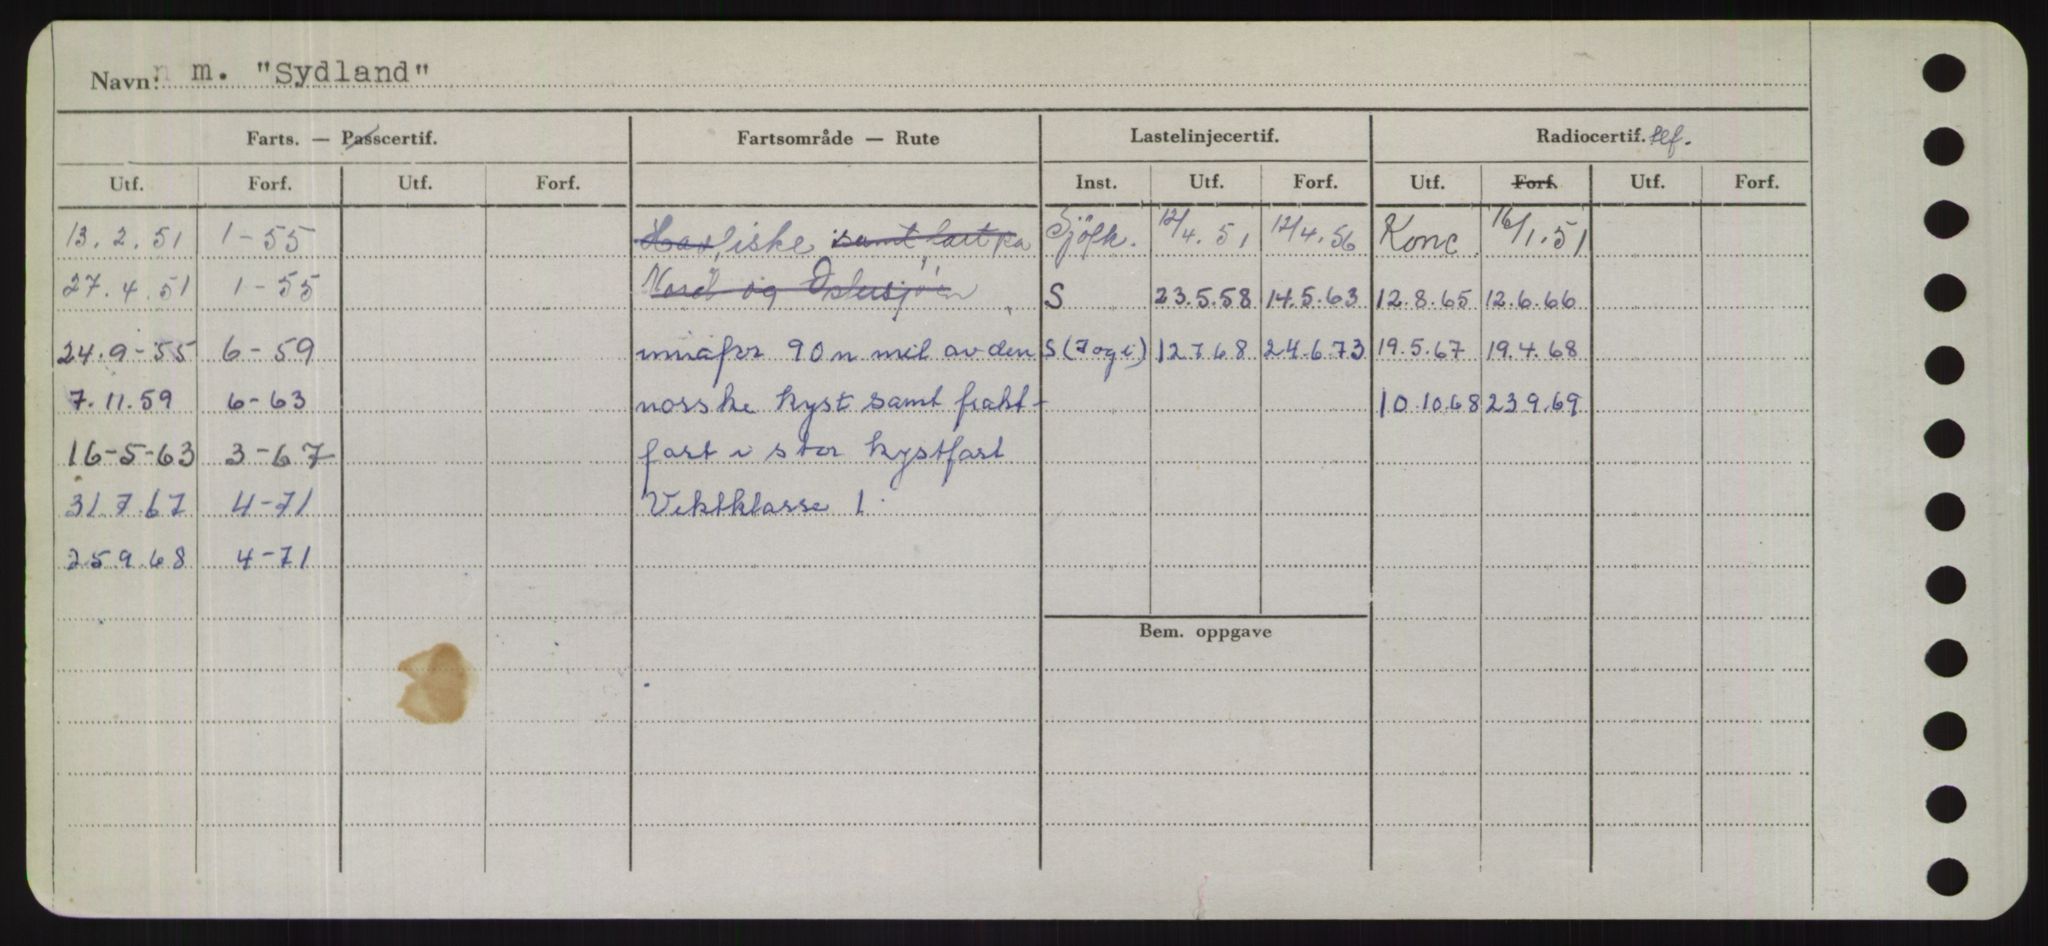 Navn: m. "Sydland"
Farts. — Passcertif. Fartsområde — Rute Lastelinjecertif. Radiocertif. tlf.
Utf. Forf. Utf. Forf. Inst. Utf. Forf. Utf. Forf. Utf. Forf.
13.2.51 1-55 fiske samt fart på Sjöfk. 12/4.51 12/4.56 Konc 16/1.51
27.4.51 1-55 Nord og Østersjøen S 23.5.58 14.5.63 12.8.65 12.6.66
24.9-55 6-59 innafor 90 n mil av den S (7 og i) 12 7 68 24.6.73 19.5.67 19.4.68
7.11.59 6-63 norske kyst samt frakt- 10.10.68 23 9.69
16-5-63 3-67 fart i stor kystfart
31.7.67 4-71 Vektklasse 1.
25 9.68 4-71
Bem. oppgave